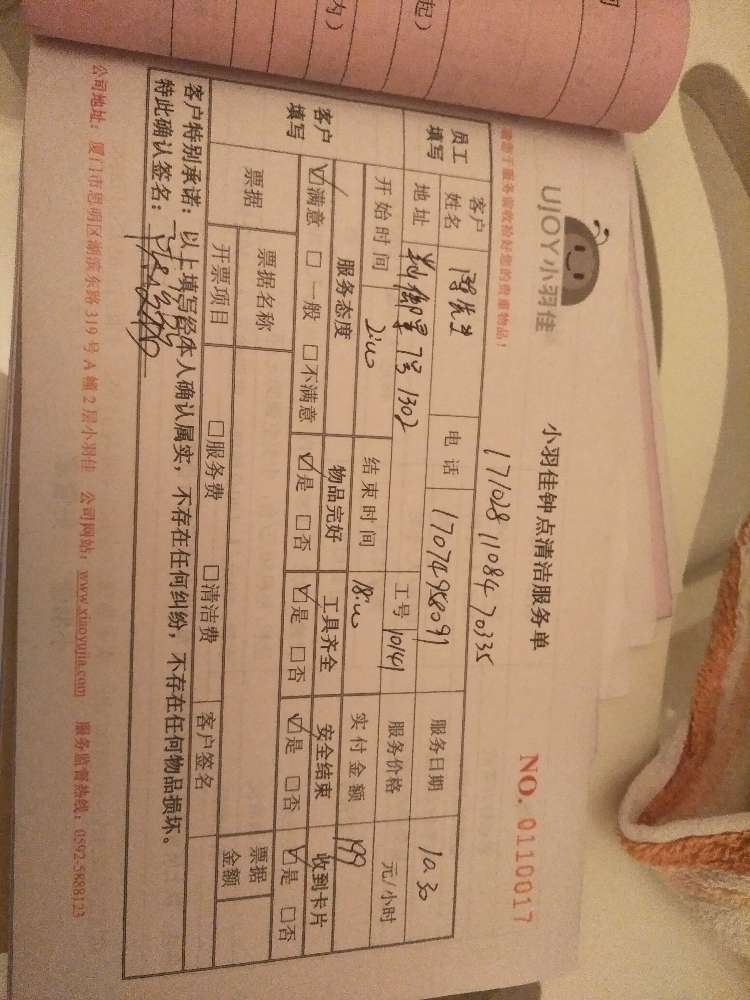 起）
内）
UJOY小羽佳
小羽佳钟点清洁服务单
NO. 0110017
171028 11084 70335
于服务前收拾好您的贵重物品！
员工填写
客户姓名
先生
电话
17074958091
服务日期
10.30
地址
御景 7号 1302
工号
10141
服务价格
元/小时
开始时间
2:00
结束时间
18:00
实付金额
199
客户填写
服务态度 物品完好 工具齐全 安全结束 收到卡片
☑满意 □一般 □不满意 ☑是 □否 ☑是 □否 ☑是 □否 ☑是 □否
票据
票据名称
票据金额
开票项目 □服务费 □清洁费 客户签名
客户特别承诺：以上填写经本人确认属实，不存在任何纠纷，不存在任何物品损坏。
特此确认签名：
公司地址：厦门市思明区湖滨东路319号A幢2层小羽佳 公司网站：www.xiaoyujia.com 服务监督热线：0592-5688123